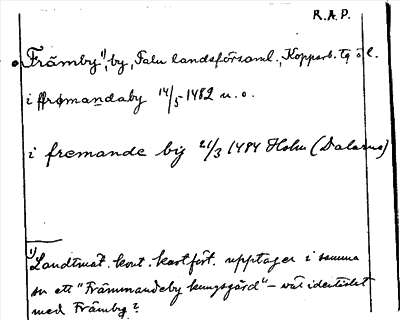 R.A.P.
Främby¹⁾, by, Falu landsförsaml., Kopparb.
i ffrømandaby 14/5 1482 u. o.
i fremande by 21/3 1484 Holm (Dalarna)
1) Landtmät. kont. kartfört. upptager i samma
sn ett "Främmandeby kungsgård" – väl identiskt
med Främby?